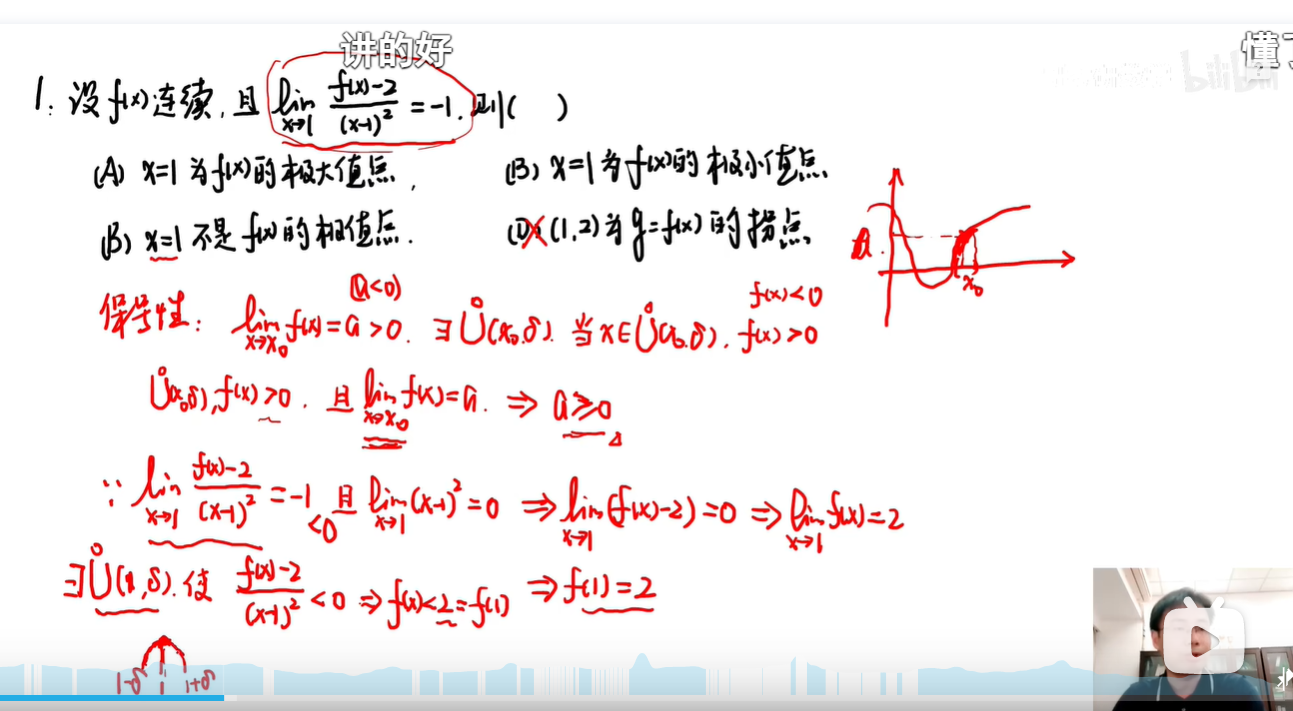 讲的好
懂了
bilibili
1. 设f(x)连续,且 lim_{x→1} (f(x)-2)/(x-1)² = -1. 则( )
(A) x=1为f(x)的极大值点,
(B) x=1为f(x)的极小值点.
(B) x=1不是f(x)的极值点.
(D) (1,2)为y=f(x)的拐点.
a
x₀
(a<0)
f(x)<0
保号性: lim_{x→x₀} f(x)=a>0. ∃Ů(x₀,δ). 当x∈Ů(x₀,δ), f(x)>0
Ů(x₀,δ), f(x)>0. 且 lim_{x→x₀} f(x)=a. ⇒ a≥0
∵ lim_{x→1} (f(x)-2)/(x-1)² = -1 <0 且 lim_{x→1} (x-1)²=0 ⇒ lim_{x→1} (f(x)-2)=0 ⇒ lim_{x→1} f(x)=2
∃Ů(1,δ). 使 (f(x)-2)/(x-1)² <0 ⇒ f(x)<2=f(1) ⇒ f(1)=2
1-δ 1 1+δ